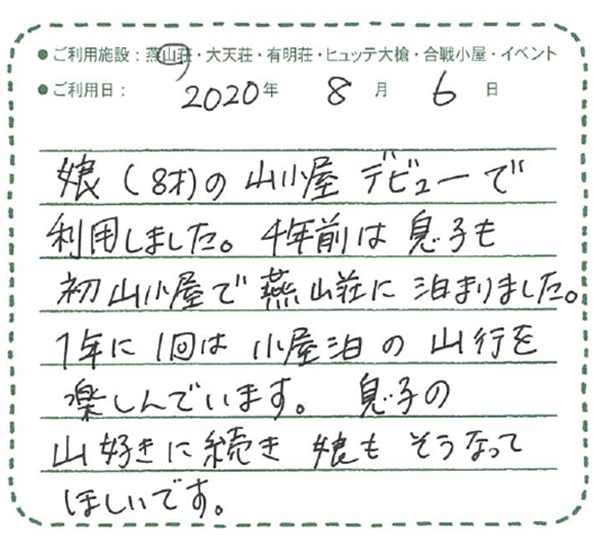 ●ご利用施設：燕山荘・大天荘・有明荘・ヒュッテ大槍・合戦小屋・イベント
●ご利用日： 2020年 8月 6日
娘(8才)の山小屋デビューで
利用しました。4年前は息子も
初山小屋で燕山荘に泊まりました。
1年に1回は小屋泊の山行を
楽しんでいます。息子の
山好きに続き娘もそうなって
ほしいです。